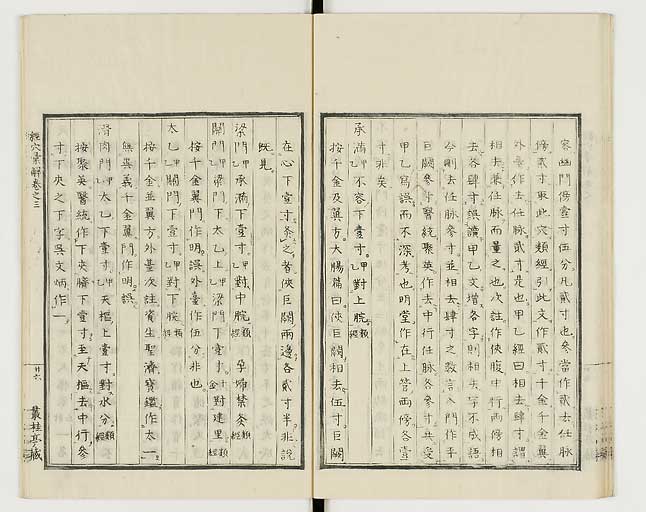 寄幽門傍壹寸伍分凡貳寸也參當作貳去任脉
條貳寸取此穴類經引此文作貳寸千金千金翼
外臺作去任脉貳寸是也甲乙經曰相去肆寸謂
相去兼任脉而量之也次註作俠腹中行兩傍相
去各肆寸誤讀甲乙文增各字則相去字不成語
今刪去任脉參寸並相去肆寸之數言入門作平
巨闕參寸醫統聚英作去中行任脉各參寸共受
甲乙寫誤而不深考也明堂作在上管兩傍各壹
寸非矣
承滿 甲乙不容下壹寸 甲乙對上脘 類經
按千金及翼方大腸篇曰俠巨闕相去伍寸巨闕
在心下壹寸条之者俠巨闕兩邊各貳寸半非説
既見
梁門 甲乙承滿下壹寸 甲乙對中脘 類經 孕婦禁灸 類經
關門 甲乙梁門下太乙上 甲乙梁門下壹寸 千金對建里 類經
按千金翼門作明誤外臺作伍分非也
太乙 甲乙關門下壹寸 甲乙對下脘 類經
按千金並翼方外臺次註資生聖濟寶鑑作太一
無異義千金翼門作明誤
滑肉門 甲乙太乙下壹寸 甲乙天樞上壹寸對水分 類經
按聚英醫統作下夾臍下壹寸至天樞去中行參
寸下夾之下字吳文炳作一
經穴彙解卷之三
廿六
叢桂亭藏